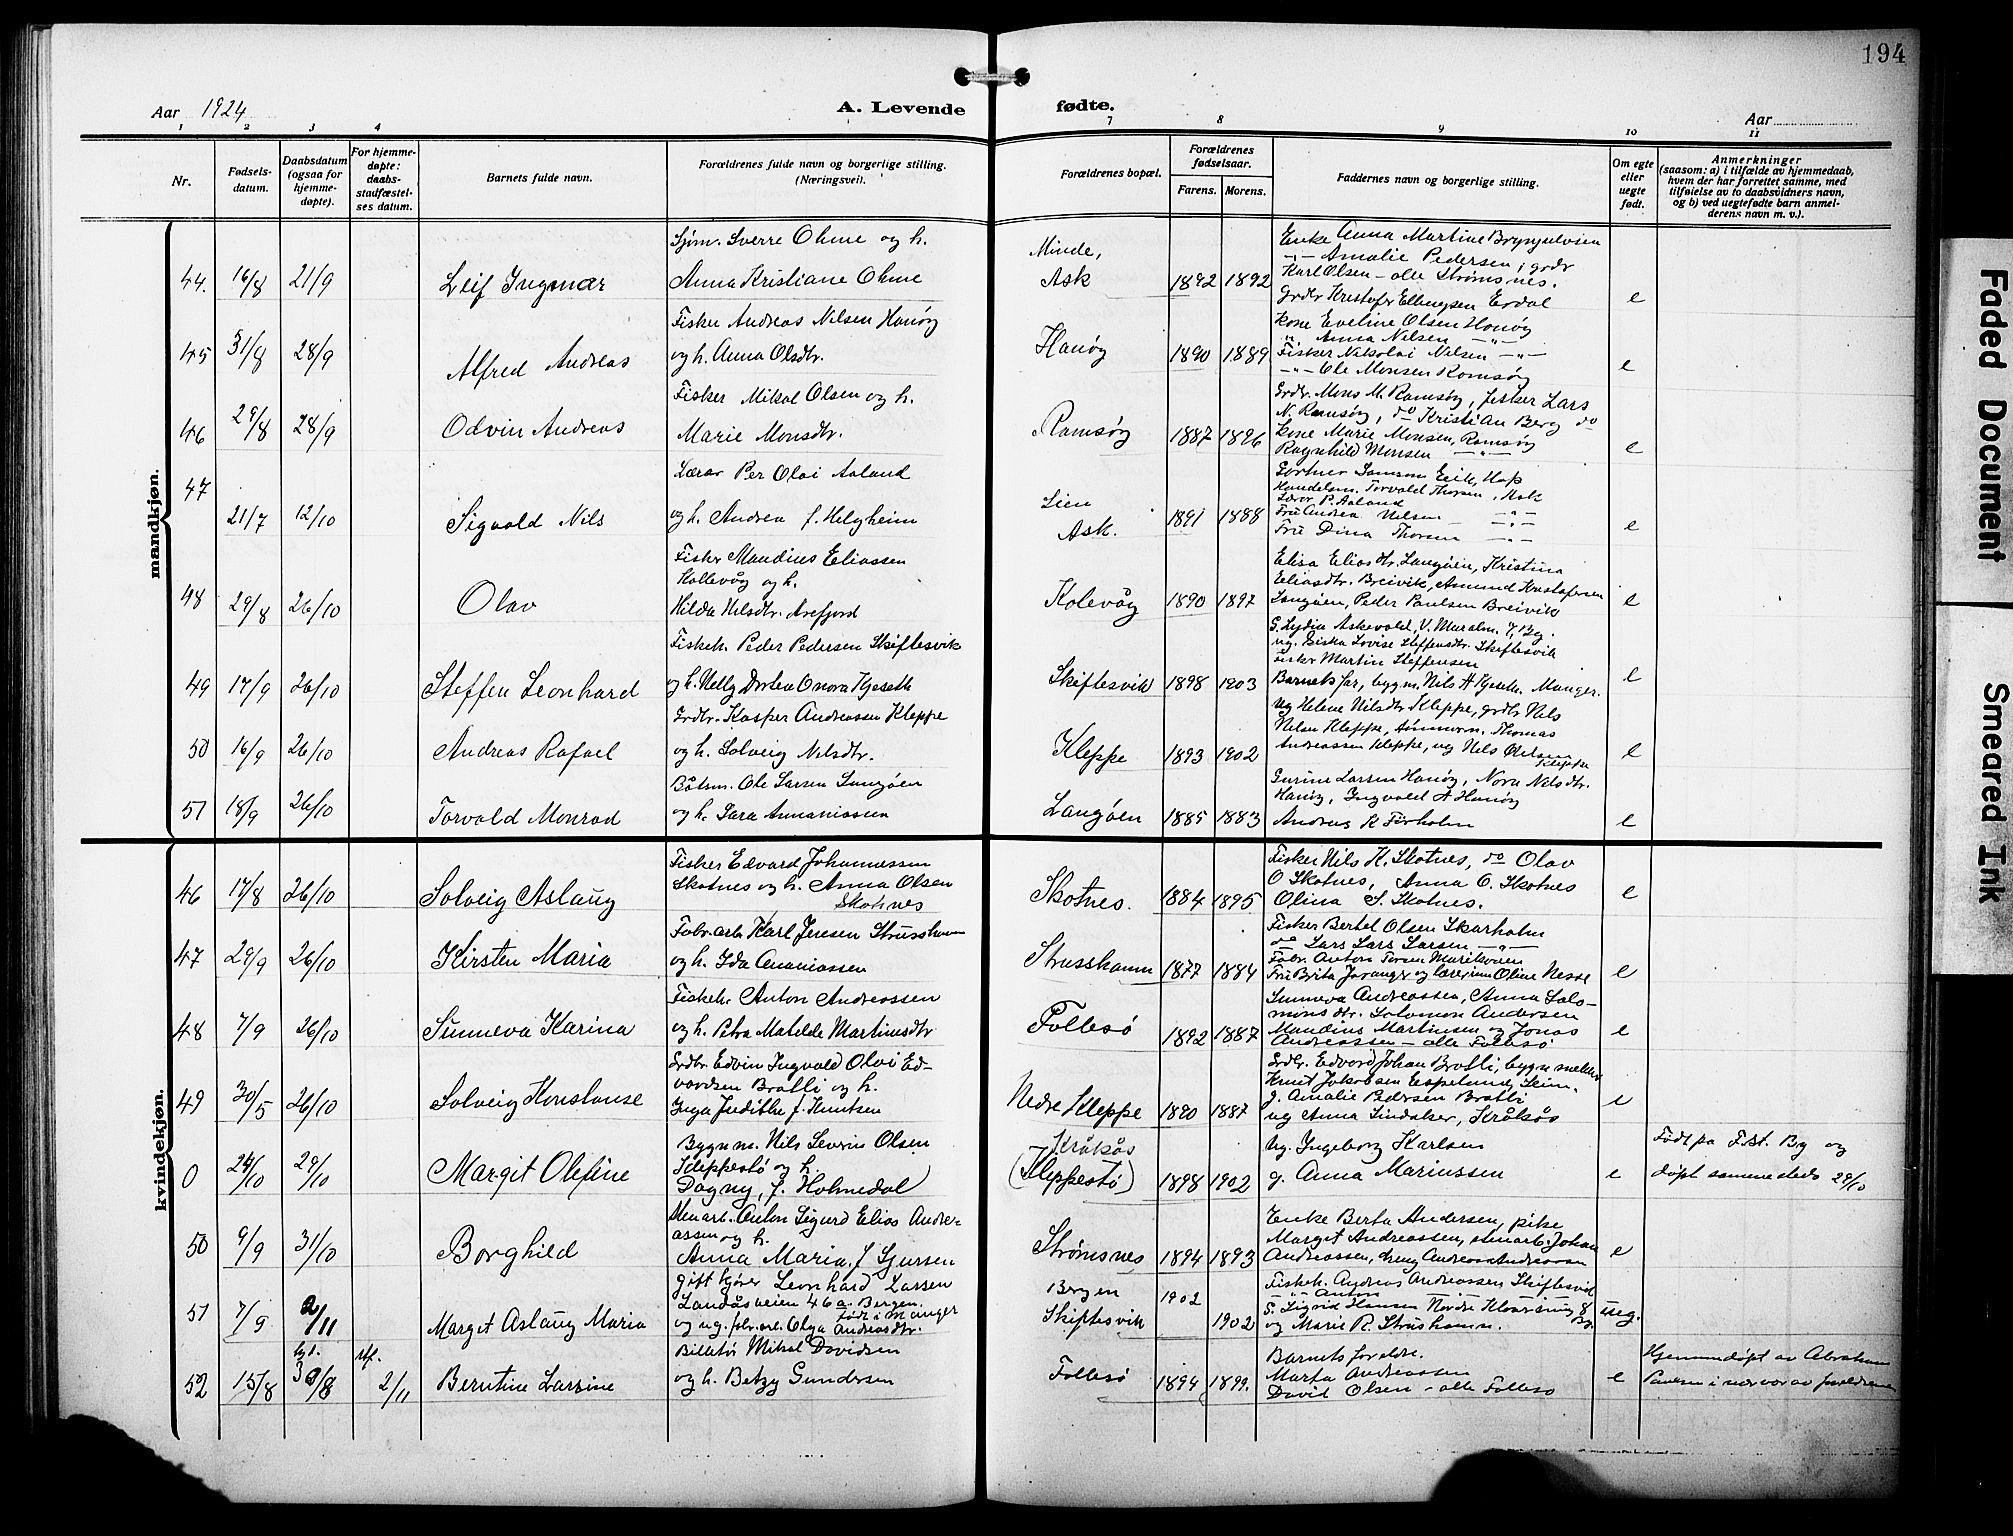 194
Aar 1924
A. Levende fødte.
Aar
1 2 3 4 7 8 9 10 11
Nr.
Fødsels-datum.
Daabsdatum (ogsaa for hjemme-døpte).
For hjemme-døpte: daabs-stadfæstel-ses datum.
Barnets fulde navn.
Forældrenes fulde navn og borgerlige stilling. (Næringsvei).
Forældrenes bopæl.
Forældrenes fødselsaar.
Farens. Morens.
Faddernes navn og borgerlige stilling.
Om egte eller uegte født.
Anmerkninger
(saasom: a) i tilfælde av hjemmedaab, hvem der har forrettet samme, med tilføielse av to daabsvidners navn, og b) ved uegtefødte barn anmel-derens navn m. v.).
mandkjøn.
44. 16/8 21/9 Leif Ingmar
Sjøm. Sverre Ohme og h.
Anna Kristiane Ohme
Minde,
Ask 1892 1892
Enke Anna Martine Brynjulvsen
-"- Amalie Pedersen, grdr
Karl Olsen - alle Strømsnes.
Grdbr Kristofer Ellingsen Erdal e
45 31/8 28/9 Alfred Andreas
Fisker Andreas Nilsen Hanøy
og h. Anna Olsdtr.
Hanøy 1890 1889
Kone Eveline Olsen Hanøy
" Anna Nilsen -"-
Fisker Nikolai Nilsen -"-
-"- Ole Monsen Ramsøy e
46 29/8 28/9 Odvin Andreas
Fisker Mikal Olsen og h.
Marie Monsdtr.
Ramsøy 1887 1896
Grdbr. Mons M. Ramsøy, fisker Lars
N. Ramsøy, do Kristian Berg do
Kone Marie Monsen, Ramsøy
Ragnhild Monsen -"- e
47 21/7 12/10 Sigvald Nils
Lærer Per Olai Aaland
og h. Andrea f. Helgheim
Lien
Ask. 1891 1888
Gartner Samson Eik, Hop
Handelsm. Torvald Thorsen, Ask
Lærer P. Aaland
Fru Andrea Nilsen -"-
Fru Dina Thorsen -"- e
48 29/8 26/10 Olav
Fisker Maudius Eliassen
Kollevåg og h.
Hilda Nilsdtr. Arefjord
Kolevåg 1890 1897
Elisa Eliasdtr. Langøien, Kristina
Eliasdtr. Breivik, Asmund Kristofersen
Langøien, Peder Paulsen Breivik e
49 17/9 26/10 Steffen Leonhard
Fiskeh. Peder Pedersen Skiftesvik
og h. Nelly Dortea Onora Kjeseth
Skiftesvik 1898 1903
G. Lydia Askevold, V. Muralm. 7, By.
ug. Siska Lovise Steffensdtr. Skiftesvik
Fisker Martin Steffensen
Barnets far, bygm. Nils A Kjeseth. Manger. e
50 16/9 26/10 Andreas Rafael
Grdbr. Kasper Andreassen Kleppe
og h. Solveig Nilsdtr.
Kleppe 1893 1902
Ug Helene Nilsdtr Kleppe, grdbr Nils
Nilsen Kleppe, tømmerm. Thomas
Andreassen Kleppe, ug Nils Olelsen
Kleppe e
51 18/9 26/10 Torvald Monrad
Båtsm. Ole Larsen Langøen
og h. Sara Annaniassen
Langøen 1885 1883
Gurine Larsen Hanøy, Nora Nilsdtr.
Hanøy, Ingvald A Hanøy
Andreas K Tirholm e
kvindekjøn.
46 17/8 26/10 Solveig Aslaug
Fisker Edvard Johannessen
Skotnes og h. Anna Olsen
Skotnes
Skotnes. 1884 1895
Fisker Nils K. Skotnes, do Olav
O Skotnes, Anna O. Skotnes
Olina S. Skotnes. e
47 29/9 26/10 Kirsten Maria
Fabr.arb Karl Jensen Strusshamn
og h. Ida Ananiassen
Strusshamn 1877 1884
Fisker Bertel Olsen Skarholm
do Lars Lars Larsen -"-
Fabr. Anton Torsen Marikoven
Fru Brita Javanger og lærerinne Oline Nesse e
48 7/9 26/10 Sunneva Karina
Fiskeh. Anton Andreassen
og h. Petra Matilde Martinsdtr
Follesø 1892 1887
Sunneva Andreassen, Anna Salo-
monsdtr. Solomon Andersen
Maudius Martinsen og Jonas
Andreassen - alle Follesø e
49 30/5 26/10 Solveig Konstanse
Grdbr. Edvin Ingvald Olai Ed-
vardsen Bratli og h.
Inga Judithe f. Knutsen
Nedre Kleppe 1890 1887
Grdbr. Edvard Johan Bratli, bygn.snekker
Knut Jakobsen Espelund, Seim,
g. Amalie Pedersen Bratli
ug Anna Lindaker, Kråkås e
0 24/10 29/10 Margit Olefine
Bygn m. Nils Severin Olsen
Kleppestø og h.
Dagny, f. Holmedal
Kråkås
(Kleppestø) 1898 1902
Ug. Ingeborg Karlsen
g. Anna Mariussen e
Født pa F.st. By og
døpt sammesteds 29/10
50 9/9 31/10 Borghild
Stenarb. Anton Sigurd Elias Andre-
assen og h.
Anna Maria f. Sjursen
Strømsnes 1894 1893
Enke Berta Andersen, pike
Margit Andreassen, stenarb. Johan
Andreassen, dreng Andreas Andreassen e
51 7/9 2/11 Marget Aslaug Maria
gift kjører Leonhard Larsen
Landåsveien 46a. Bergen.
født i Manger
og ug. fabr.arb. Olga Andreasdtr.
Bergen
Skiftesvik 1902 1902
Fiskeh. Andreas Andreassen Skiftesvik
-"- Anton -"-
S. Sigrid Hansen Nordre 8
og Marie R. Strushamn. ueg.
52 15/8 30/8 stf. 2/11 Berntine Larsine
Billetør Mikal Davidsen
og h. Betzy Gundersen
Follesø 1894 1899.
Barnets foreldre.
Marta Andreassen
David Olsen - alle Follesø e
Hjemmedøpt av Abraham
Paulsen i nærvær av foreldrene
Faded Document
Smeared Ink